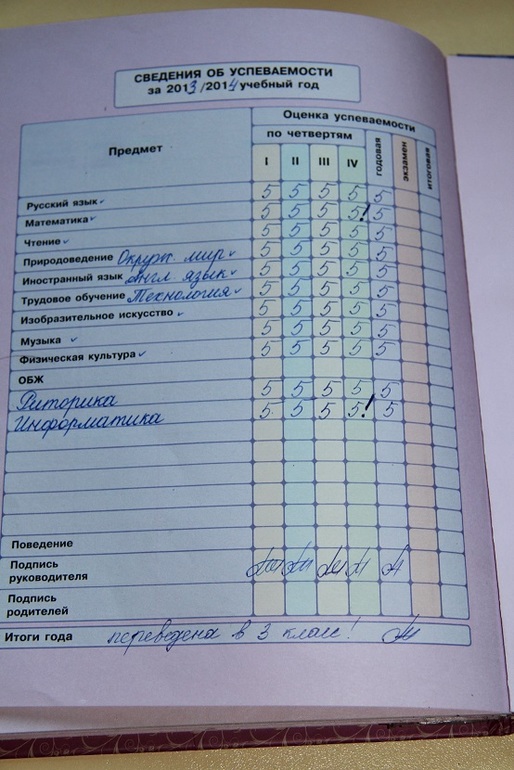 СВЕДЕНИЯ ОБ УСПЕВАЕМОСТИ
за 2013/2014 учебный год
Предмет
Оценка успеваемости
по четвертям
I II III IV годовая экзамен итоговая
Русский язык 5 5 5 5 5
Математика 5 5 5 5! 5
Чтение 5 5 5 5 5
Природоведение Окруж. мир 5 5 5 5 5
Иностранный язык Англ. язык 5 5 5 5 5
Трудовое обучение Технология 5 5 5 5 5
Изобразительное искусство 5 5 5 5 5
Музыка 5 5 5 5 5
Физическая культура 5 5 5 5 5
ОБЖ
Риторика 5 5 5 5 5
Информатика 5 5 5 5! 5
Поведение
Подпись
руководителя
Подпись
родителей
Итоги года переведена в 3 класс!